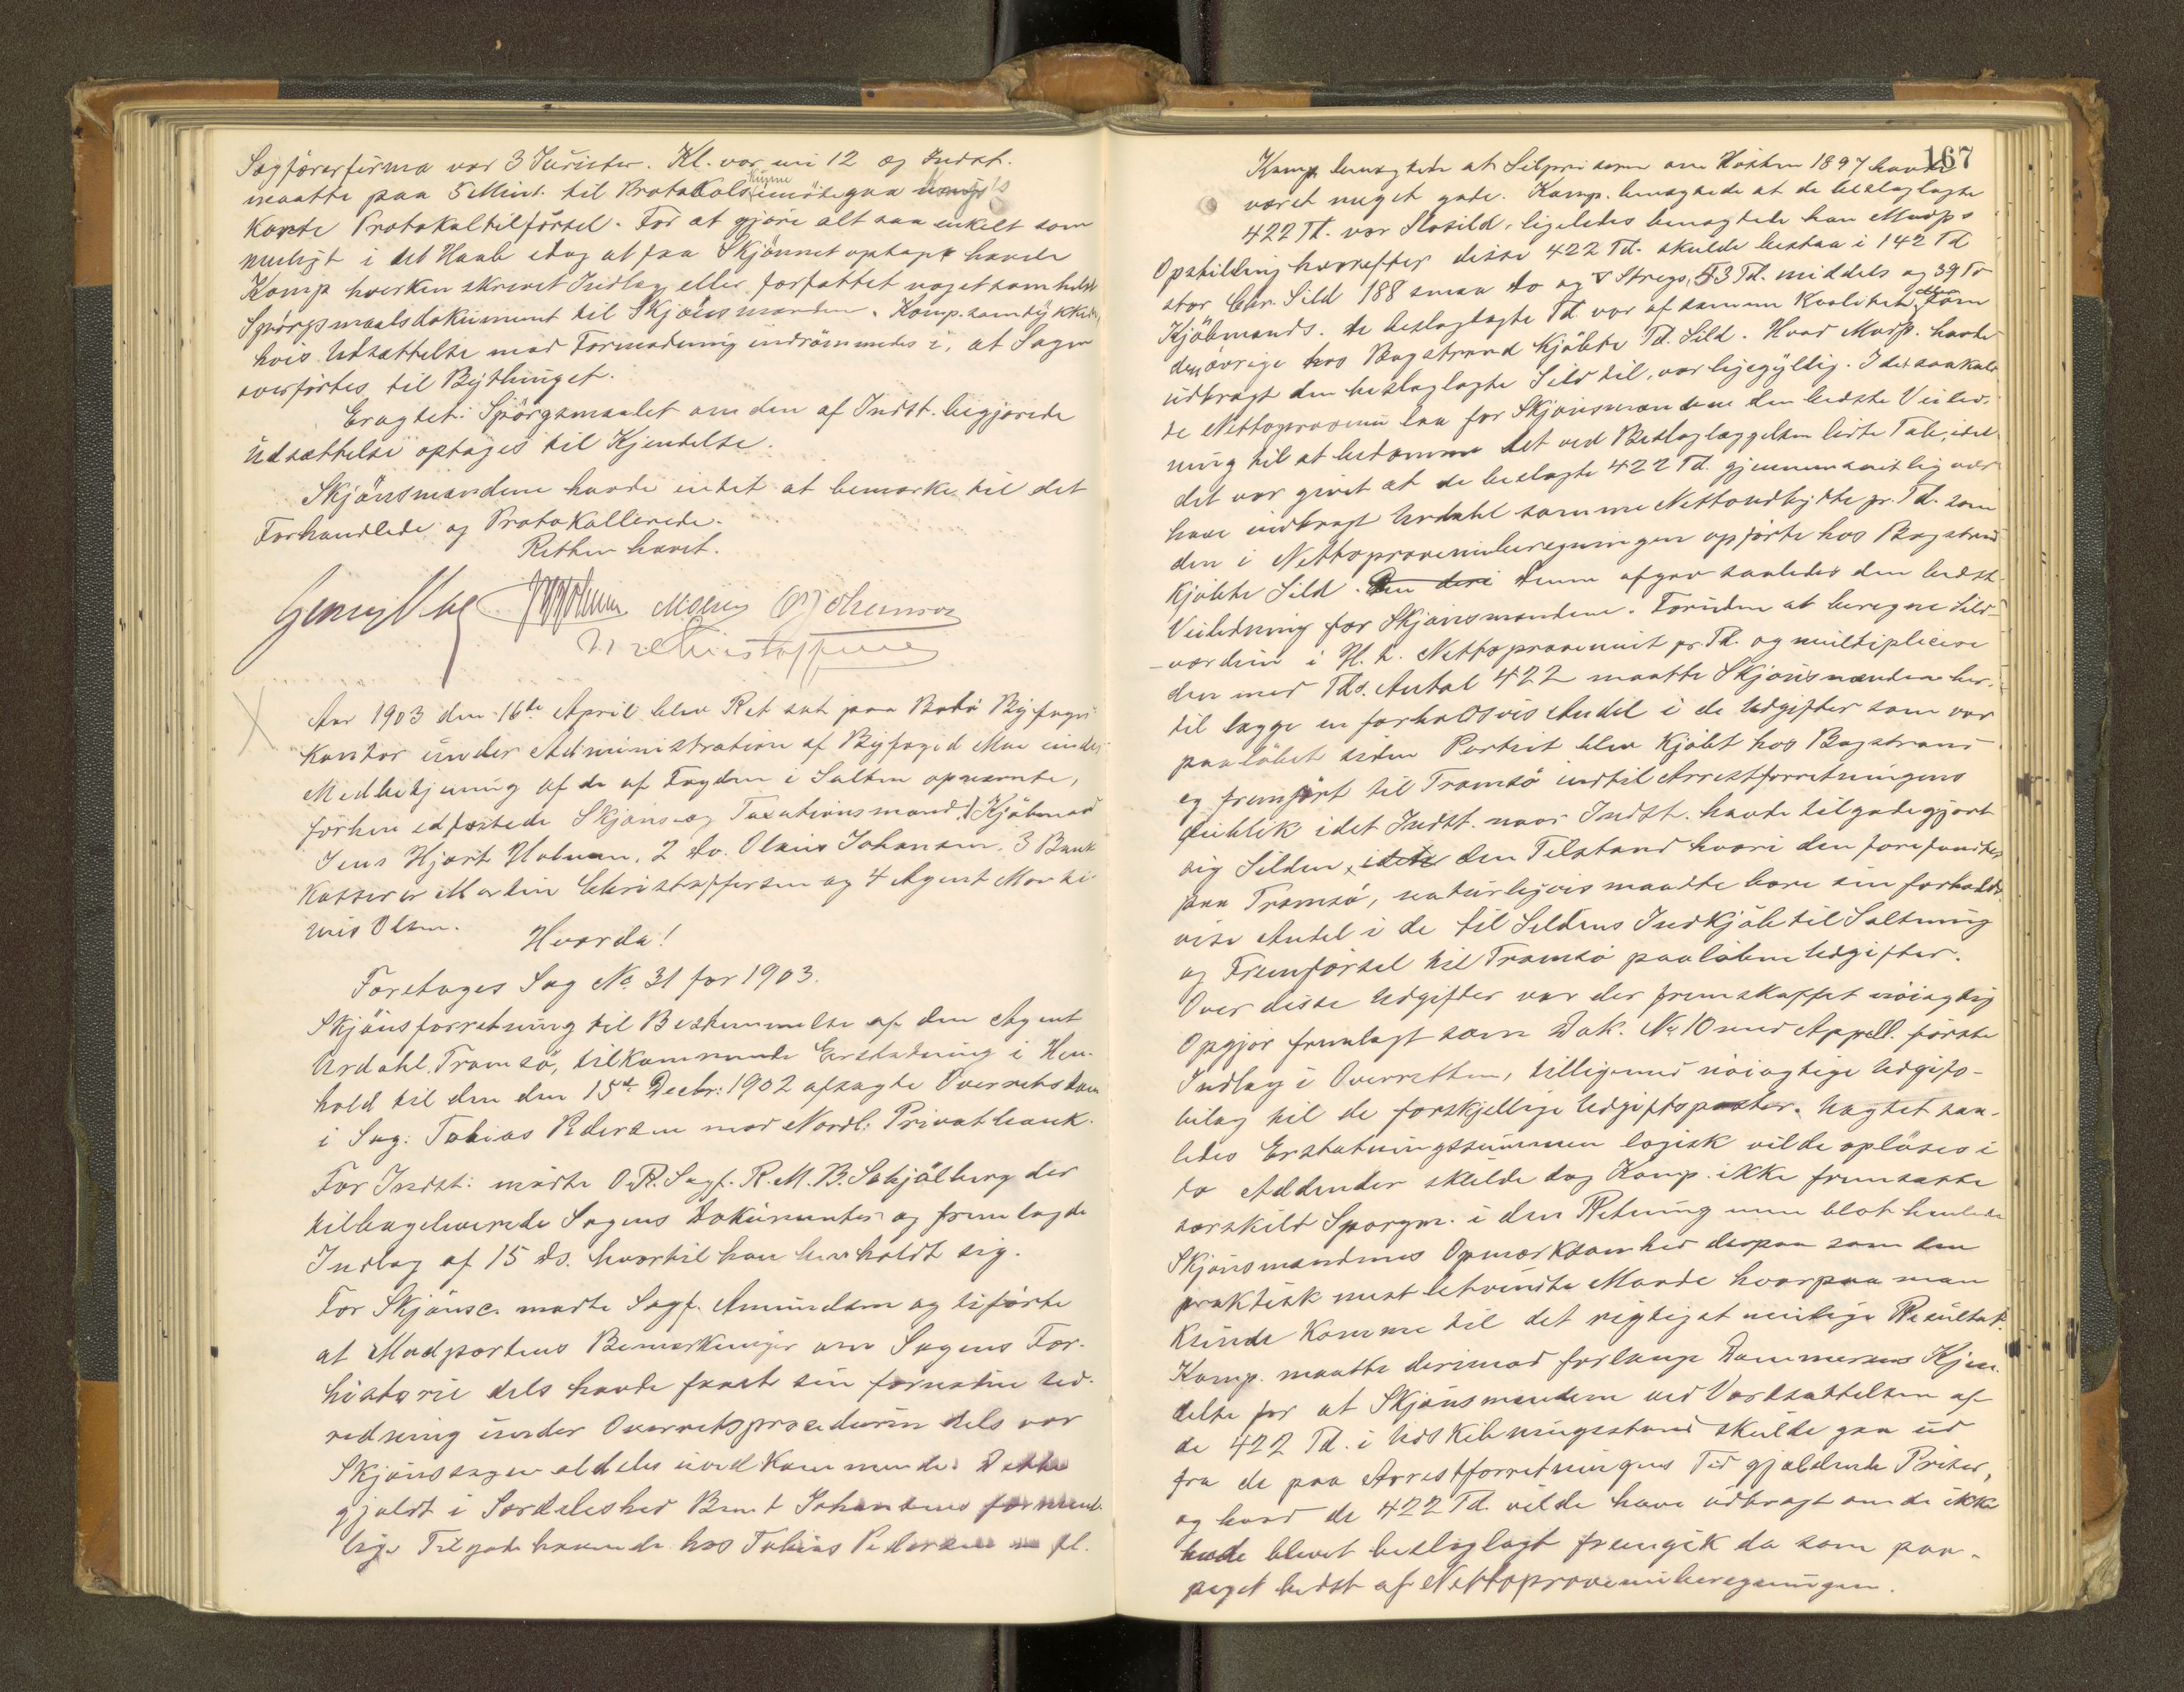 Sagførerfirma var 3 Jurister. Kl. var nu 12 og Indst.
maatte paa 5 Mint. til Protokols kunne imødegaa
Korte Protokoltilførsel. For at gjøre alt saa enkelt som
muligt i det Haab idag at faa Skjønnet optaget havde
Komp hverken skrevet Indlæg eller forfattet noget somhelst
Spørgsmaalsdokument til Skjønsmænden. Komp. samtykkede,
hvis Udsættelse mod Formodning indrømmedes i, at Sagen
overførtes til Bythinget.
Eragtet: Spørgsmaalet om den af Indst. begjærede
Udsættelse optages til Kjendelse.
Skjønsmændene havde intet at bemærke til det
Forhandlede og Protokollerede.
Retten hævet.
JHHolmen MOlsen OJohansen
M Christoffersen
Aar 1903 den 16de April blev Ret sat paa Bodø Byfogd
Kontor under Administration af Byfoged Moe under
Medbetjening af de af Fogden i Salten opnævnte,
förhen edfæstede Skjøns og Taxationsmænd, 1 Kjøbmand
Jens Hjort Holmen, 2 do. Olaus Johansen, 3 Bank
Kasserer Martin Christoffersen og 4 Agent Marti-
nus Olsen.
Hvorda!
Foretoges Sag No 31 for 1903.
Skjønsforretning til Bestemmelse af den Agent
Urdahl, Tromsø, tilkommende Erstatning i Hen-
hold til den den 15de Decbr: 1902 afsagte Overretsdom
i Sag: Tobias Pedersen mod Nordl: Privatbank.
For Indst: mødte O.R. Sagf. R. M. B. Schjølberg der
tilbageleverede Sagens Dokumenter og fremlagde
Indlæg af 15 ds. hvortil han henholdt sig.
For Skjønsc. mødte Sagf. Amundsen og tilførte
at Modpartens Bemærkninger om Sagens For-
historie dels havde faaet sin fornødne Ud-
redning under Overretsproceduren dels var
Skjønssagen aldeles uvedkommende. Dette
gjaldt i Særdeleshed Bernt Johansens forment-
lige Tilgodehavende hos Tobias Pedersen m fl.
167
Komp benægtede at Sildpriserne om Høsten 1897 havde
været meget gode. Komp. benægtede at de beslaglagte
422 Td. var Slosild, ligeledes benægtede han Modp's
Opstilling hvorefter disse 422 Td. skulde bestaa i 142 Td
stor Chr. Sild 188 smaa do og Stregs, 53 Td. middels og 39 Td
Kjøbmands. De beslaglagte Td var af samme Kvalitet som
den øvrige hos Bagstrand kjøbte Td. Sild. Hvad Modp. havde
udbragt den beslaglagte Sild til, var ligegyldig. I det saakald-
te Nettoprovenu laa for Skjønsmændene den bedste Veiled-
ning til at bedømme det ved Beslaglæggelsen lidte Tab, idet
det var givet at de beslagte 422 Td. gjennemsnitlig vilde
have indbragt Urdahl samme Nettoudbytte pr. Td. som
den i Nettoprovenuberegningen opførte hos Bagstrand
kjøbte Sild. Denne afgav saaledes den bedste
Veiledning for Skjønsmændene. Foruden at beregne Sild-
værdien i H. t. Nettoprovenuet pr. Td. og multiplicere
den med Tds. Antal 422 maatte Skjønsmændene her-
til lægge en forholdsvis Andel i de Udgifter som var
paaløbet siden Partiet blev kjøbt hos Bagstrand
og fremført til Tromsø indtil Arrestforretningens
Øieblik idet Indst. naar Indst. havde tilgodegjort
sig Silden, i den Tilstand hvori den forefandtes
paa Tromsø, naturligvis maatte bære sin forholds-
vise Andel i de til Sildens Indkjøb til Saltning
og Fremførsel til Tromsø paaløbne Udgifter.
Over disse Udgifter var der fremskaffet nøiagtig
Opgjør fremlagt som Dok. No 10 med Appell. første
Indlæg i Overretten, tilligemed nøiagtige Udgifs-
bilag til de forskjellige Udgiftsposter. Uagtet saa-
ledes Erstatningssummen logisk vilde opløses i
to Addender skulde dog Komp. ikke fremsætte
særskilt Spørgm. i den Retning men blot henlede
Skjønsmændenes Opmærksomhed derpaa som den
praktisk mest letvindte Maade hvorpaa man
kunde komme til det rigtigst mulige Resultat.
Komp. maatte derimod forlange Dommerens Kjen-
delse for at Skjønsmændene ved Værdsættelsen af
de 422 Td. i Udskibningsstand skulde gaa ud
fra de paa Arrestforretningens Tid gjældende Priser,
og hvad de 422 Td. vilde have udbragt om de ikke
havde blevet beslaglagt fremgik da som paa-
peget bedst af Nettoprovenuberegningen.